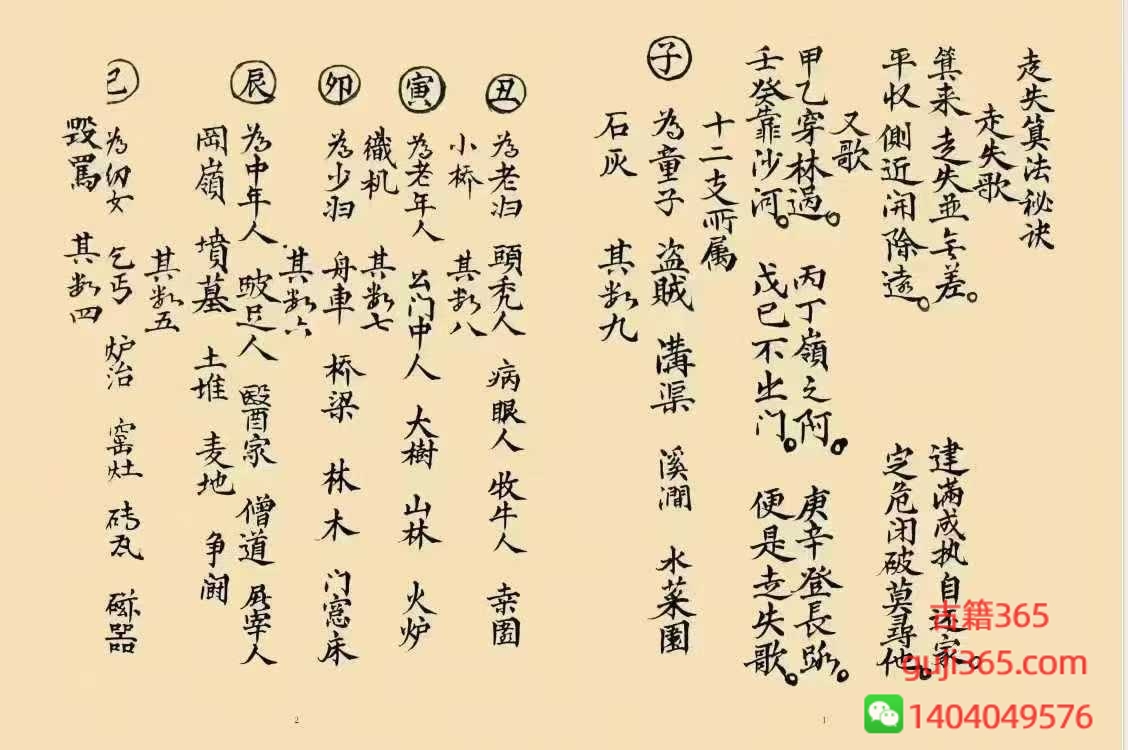 走失筭法秘诀
走失歌
筭来走失並无差。 建滿成执自还家。
平收側近開除遠。 定危闭破莫尋他。
又歌
甲乙穿林過。 丙丁嶺之阿。 庚辛登長路。
壬癸靠沙河。 戊己不出门。 便是走失歌。
十二支所属
子 為童子 盗賊 溝渠 溪澗 水菜園
石灰 其数九
丑 為老妇 頭秃人 病眼人 牧牛人 桑園
小桥 其数八
寅 為老年人 公门中人 大樹 山林 火炉
織机 其数七
卯 為少妇 舟車 桥梁 林木 门窓床
其数六
辰 為中年人 跛足人 醫家 僧道 屠宰人
岡嶺 墳墓 土堆 麦地 争闘
其数五
巳 為幼女 乞丐 炉冶 窑灶 砖瓦 磁器
毀罵 其数四
1
2
古籍365
guji365.com
1404049576